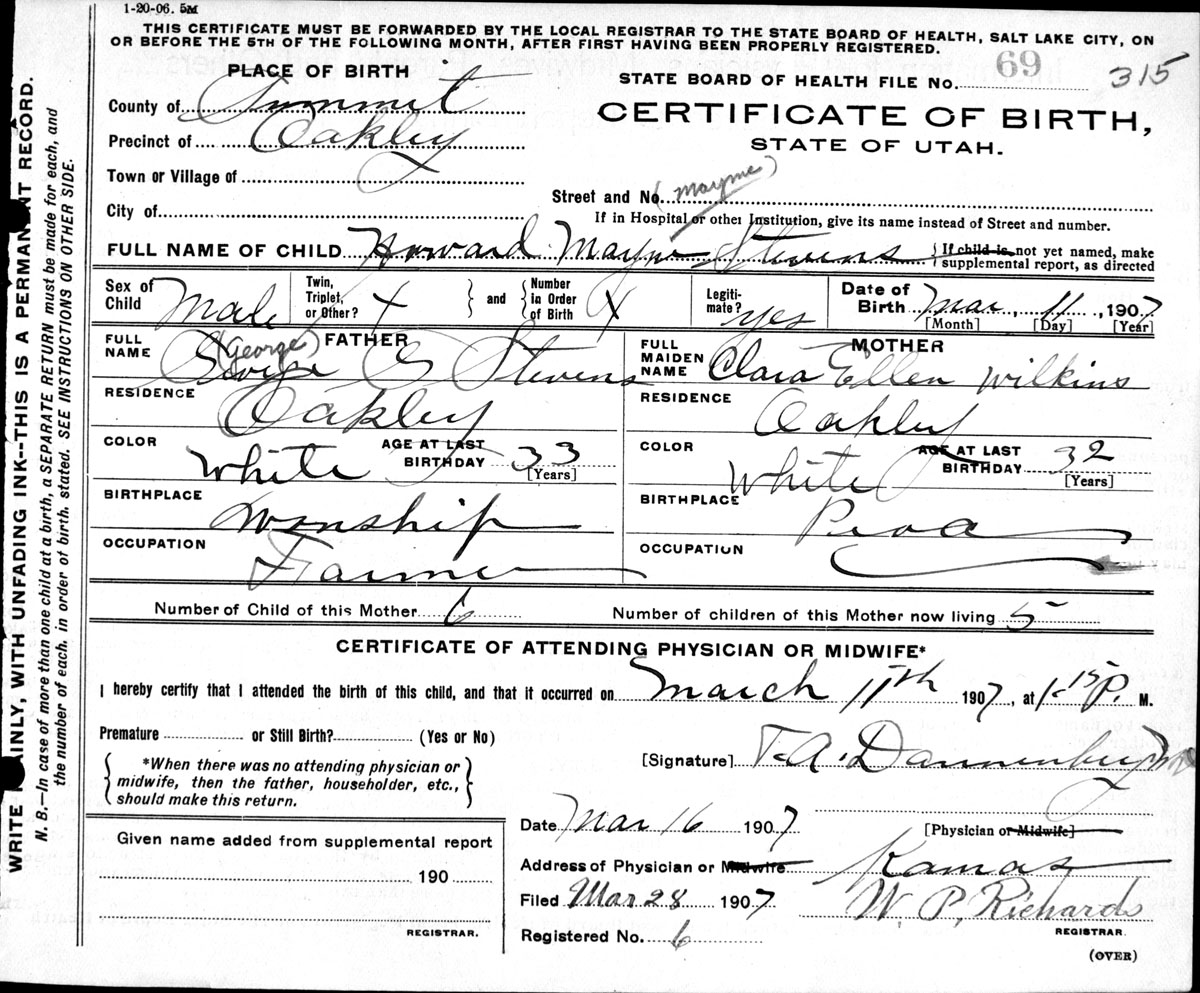 1-20-06. 5M
THIS CERTIFICATE MUST BE FORWARDED BY THE LOCAL REGISTRAR TO THE STATE BOARD OF HEALTH, SALT LAKE CITY, ON
OR BEFORE THE 5TH OF THE FOLLOWING MONTH, AFTER FIRST HAVING BEEN PROPERLY REGISTERED.
PLACE OF BIRTH
STATE BOARD OF HEALTH FILE No. 69 315
County of Summit
CERTIFICATE OF BIRTH,
Precinct of Oakley
STATE OF UTAH.
Town or Village of
(Mayme)
Street and No.
City of
If in Hospital or other Institution, give its name instead of Street and number.
FULL NAME OF CHILD Howard Mayne Stevens { If child is not yet named, make
supplemental report, as directed
Sex of Child Male
Twin, Triplet, or Other? X } and { Number in Order of Birth X
Legiti-mate? yes
Date of Birth Mar, 11, 1907
[Month] [Day] [Year]
FATHER
FULL NAME (George) George G Stevens
RESIDENCE Oakley
COLOR White AGE AT LAST BIRTHDAY 33 [Years]
BIRTHPLACE Wanship
OCCUPATION Farmer
MOTHER
FULL MAIDEN NAME Clara Ellen Wilkins
RESIDENCE Oakley
COLOR White AGE AT LAST BIRTHDAY 32 [Years]
BIRTHPLACE Peoa
OCCUPATION
Number of Child of this Mother 6 Number of children of this Mother now living 5
CERTIFICATE OF ATTENDING PHYSICIAN OR MIDWIFE*
I hereby certify that I attended the birth of this child, and that it occurred on March 11th 1907, at 1-15 P. M.
Premature or Still Birth? (Yes or No)
[Signature] T. A. Dannenberg
{ *When there was no attending physician or
midwife, then the father, householder, etc.,
should make this return. }
Date Mar 16 1907 [Physician or Midwife]
Address of Physician or Midwife Kamas
Filed Mar 28 1907 W. P. Richards
REGISTRAR.
Registered No. 6
(OVER)
Given name added from supplemental report
190
REGISTRAR.
WRITE PLAINLY, WITH UNFADING INK--THIS IS A PERMANENT RECORD.
N. B.—In case of more than one child at a birth, a SEPARATE RETURN must be made for each, and
the number of each, in order of birth, stated. SEE INSTRUCTIONS ON OTHER SIDE.